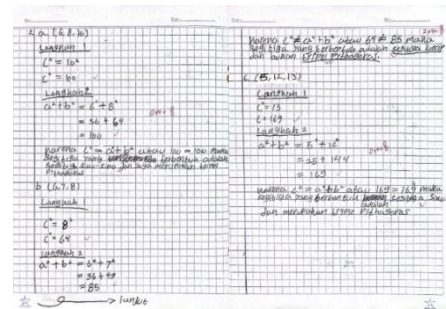 2. a. (6, 8, 10)
Langkah 1
c² = 10²
c² = 100
Langkah 2
a² + b² = 6² + 8²
= 36 + 64
= 100
karena c² = a² + b² atau 100 = 100 maka
segitiga yang terbentuk adalah
segitiga siku-siku dan juga merupakan triple
Pithagoras
b. (6, 7, 8)
Langkah 1
c² = 8²
c² = 64
Langkah 2
a² + b² = 6² + 7²
= 36 + 49
= 85
lanjut
karena c² ≠ a² + b² atau 64 ≠ 85 maka
segitiga yang terbentuk adalah segitiga lancip
dan bukan triple Pithagoras.
c. (5, 12, 13)
Langkah 1
c² = 13
c = 169
Langkah 2
a² + b² = 5² + 12²
= 25 + 144
= 169
karena c² = a² + b² atau 169 = 169 maka
segitiga yang terbentuk segitiga siku
adalah
dan merupakan triple Pithagoras